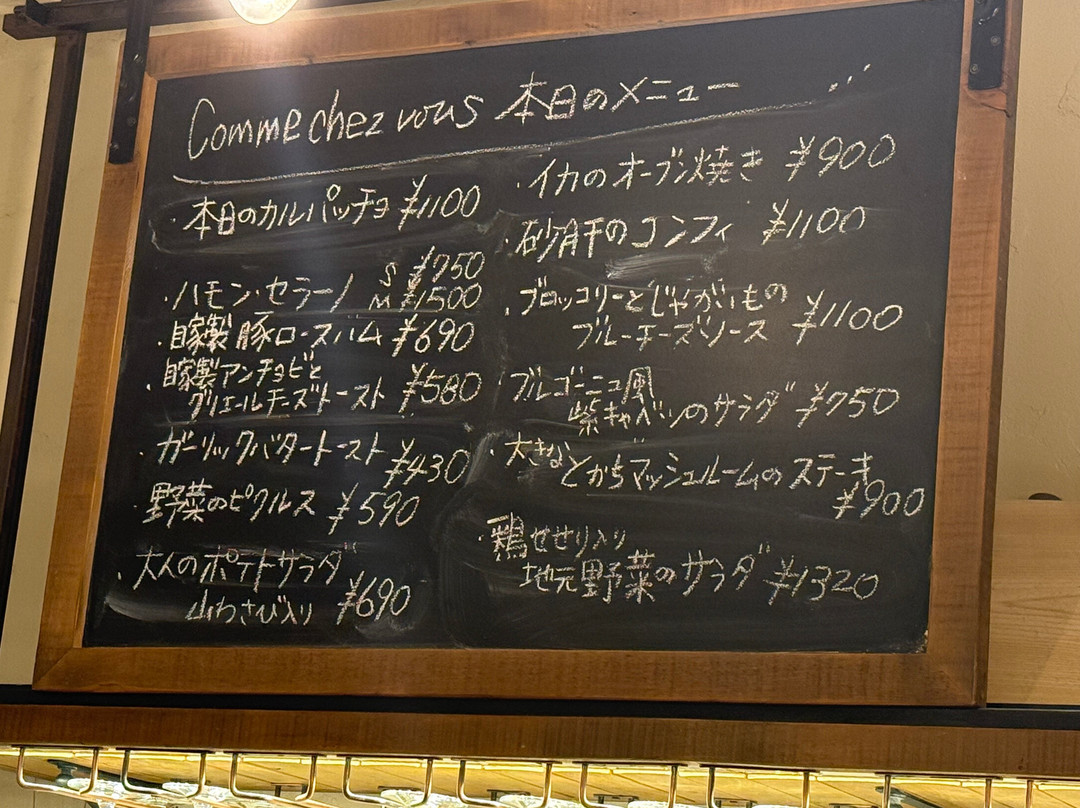 Comme chez vous 本日のメニュー
・本日のカルパッチョ ¥1100
・ハモン・セラーノ S ¥750
M ¥1500
・自家製 豚ロースハム ¥690
・自家製アンチョビと
グリエールチーズトースト ¥580
・ガーリックバタートースト ¥430
・野菜のピクルス ¥590
・大人のポテトサラダ
山わさび入り ¥690
・イカのオーブン焼き ¥900
・砂肝のコンフィ ¥1100
・ブロッコリーとじゃがいもの
ブルーチーズソース ¥1100
ブルゴーニュ風
紫キャベツのサラダ ¥750
・大きなとかちマッシュルームのステーキ
¥900
・鶏せせり入り
地元野菜のサラダ ¥1320